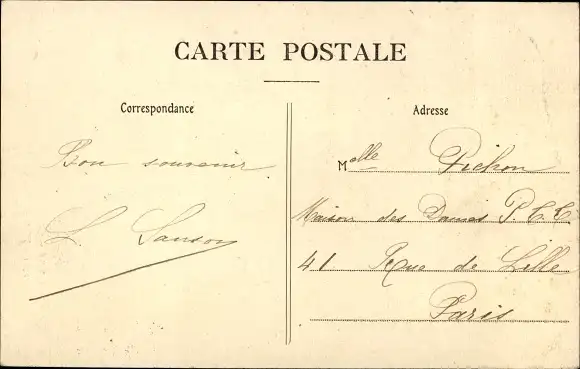 CARTE POSTALE
Correspondance
Adresse
Bon souvenir
L. Sanson
Melle Pichon
Maison des Dames P.T.T.
41 Rue de Lille
Paris